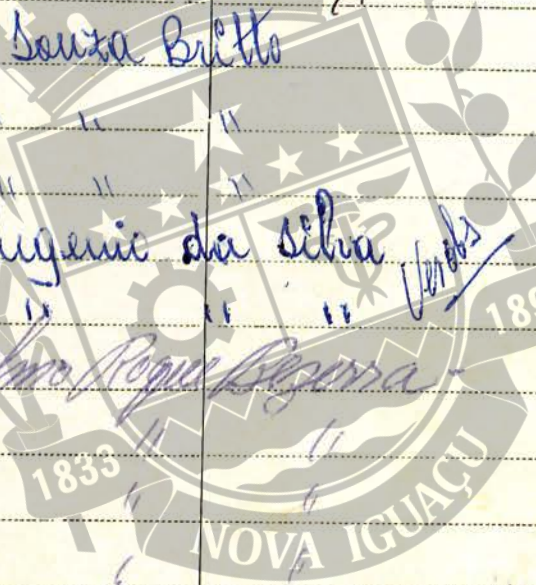 Souza Britto
" "
" " "
ugenio da Silva Verobs
" " "
Roque Bezerra -
" "
" "
" "
1833
189
NOVA IGUAÇU